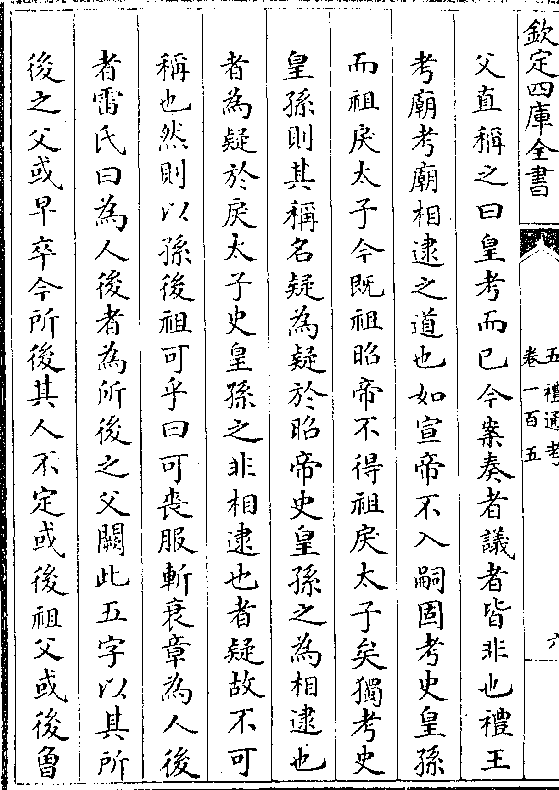 欽定四庫全書
五禮通考
卷一百五
六
父直稱之曰皇考而已今案奏者議者皆非也禮王
考廟考廟相逮之道也如宣帝不入嗣固考史皇孫
而祖戾太子今既祖昭帝不得祖戾太子矣獨考史
皇孫則其稱名疑為疑於昭帝史皇孫之為相逮也
者為疑於戾太子史皇孫之非相逮也者疑故不可
稱也然則以孫後祖可乎曰可喪服斬衰章為人後
者雷氏曰為人後者為所後之父闕此五字以其所
後之父或早卒今所後其人不定或後祖父或後曽